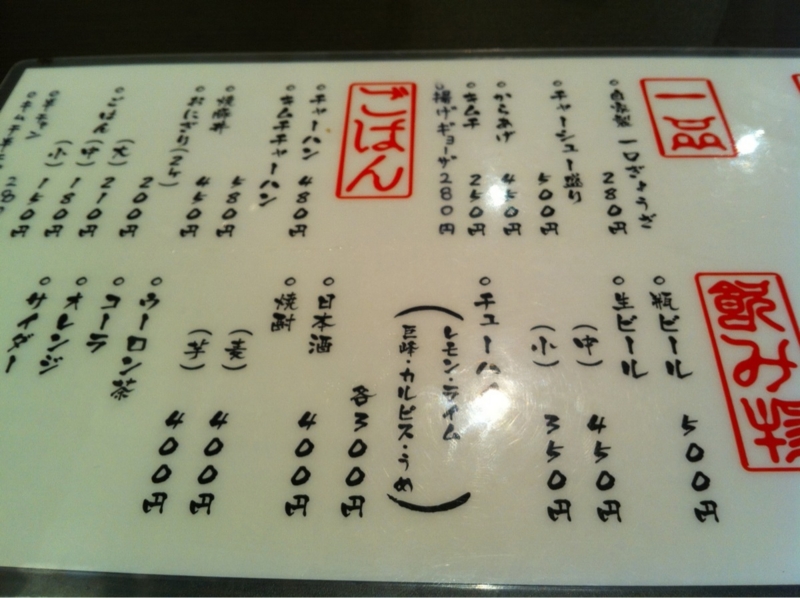 一品
○自家製 一口ギョウザ 280円
○チャーシュー盛り 500円
○からあげ 450円
○キムチ 250円
○揚げギョーザ 280円
ごはん
○チャーハン 480円
○キムチチャーハン
○焼豚丼
○おにぎり(2コ)
○ごはん
(大)
(中) 180円
(小) 150円
飲み物
○瓶ビール 500円
○生ビール
(中) 450円
(小) 350円
○チューハイ
(レモン・ライム
巨峰・カルピス・うめ)
各300円
○日本酒 400円
○焼酎
(麦) 400円
(芋) 400円
○ウーロン茶
○コーラ
○オレンジ
○サイダー